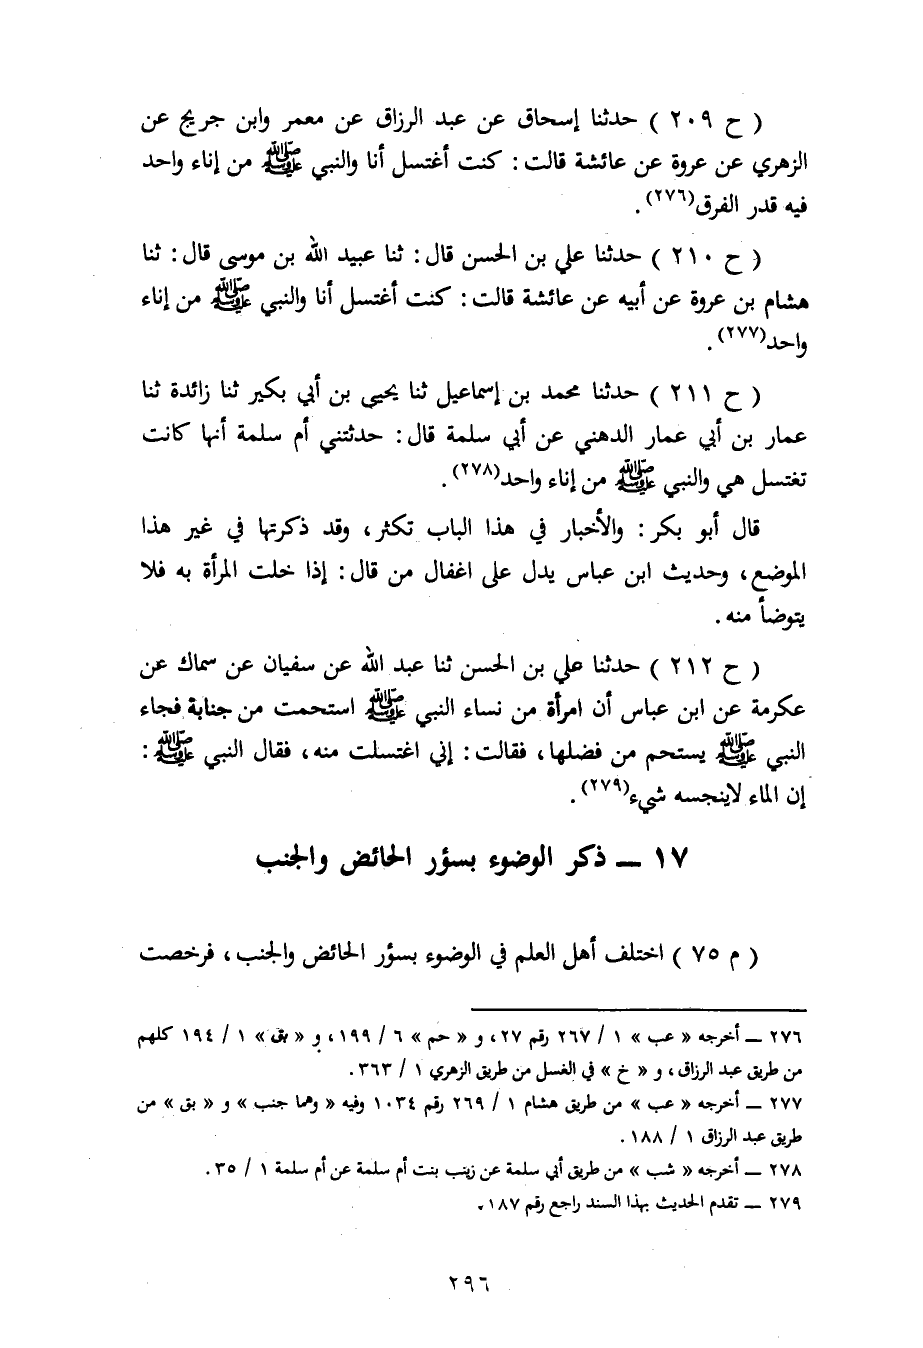 ( ح ٢٠٩ ) حدثنا إسحاق عن عبد الرزاق عن معمر وابن جريج عن
الزهري عن عروة عن عائشة قالت : كنت أغتسل أنا والنبي ﷺ من إناء واحد
فيه قدر الفرق(٢٧٦) .
( ح ٢١٠ ) حدثنا علي بن الحسن قال : ثنا عبيد الله بن موسى قال : ثنا
هشام بن عروة عن أبيه عن عائشة قالت : كنت أغتسل أنا والنبي ﷺ من إناء
واحد(٢٧٧) .
( ح ٢١١ ) حدثنا محمد بن إسماعيل ثنا يحيى بن أبي بكير ثنا زائدة ثنا
عمار بن أبي عمار الدهني عن أبي سلمة قال : حدثتني أم سلمة أنها كانت
تغتسل هي والنبي ﷺ من إناء واحد(٢٧٨) .
قال أبو بكر : والأخبار في هذا الباب تكثر ، وقد ذكرتها في غير هذا
الموضع ، وحديث ابن عباس يدل على اغفال من قال : إذا خلت المرأة به فلا
يتوضأ منه .
( ح ٢١٢ ) حدثنا علي بن الحسن ثنا عبد الله عن سفيان عن سماك عن
عكرمة عن ابن عباس أن امرأة من نساء النبي ﷺ استحمت من جنابة فجاء
النبي ﷺ يستحم من فضلها ، فقالت : إني اغتسلت منه ، فقال النبي ﷺ :
إن الماء لاينجسه شيء(٢٧٩) .
١٧ ــ ذكر الوضوء بسؤر الحائض والجنب
( م ٧٥ ) اختلف أهل العلم في الوضوء بسؤر الحائض والجنب ، فرخصت
٢٧٦ ــ أخرجه « عب » ١ / ٢٦٧ رقم ٢٧ ، و « حم » ٦ / ١٩٩ ، و « بق » ١ / ١٩٤ كلهم
من طريق عبد الرزاق ، و « خ » في الغسل من طريق الزهري ١ / ٣٦٣ .
٢٧٧ ــ أخرجه « عب » من طريق هشام ١ / ٢٦٩ رقم ١٠٣٤ وفيه « وهما جنب » و « بق » من
طريق عبد الرزاق ١ / ١٨٨ .
٢٧٨ ــ أخرجه « شب » من طريق أبي سلمة عن زينب بنت أم سلمة عن أم سلمة ١ / ٣٥ .
٢٧٩ ــ تقدم الحديث بهذا السند راجع رقم ١٨٧ .
٢٩٦